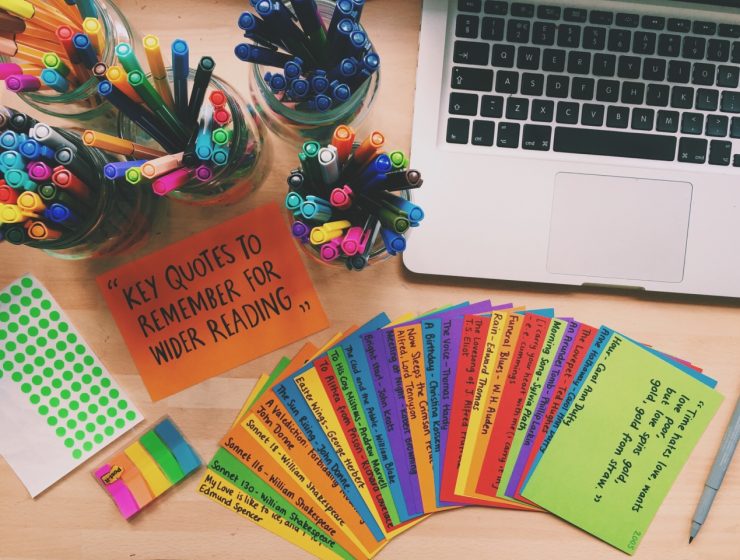 “KEY QUOTES TO
REMEMBER FOR
WIDER READING”
Post-it
My Love is like to ice, and I
Edmund Spencer
Sonnet 130 - William Shakespeare
Sonnet 116 - William Shakespeare
Sonnet 18 - William Shakespeare
Easter Wings - George Herbert
A Valediction: Forbidding
John Donne
The Sun Rising - John Donne
To Althea, from Prison - Richard Lovelace
To His Coy Mistress - Andrew Marvell
The Clod and the Pebble - William Blake
Bright Star - John Keats
Meeting at Night - Robert Browning
Now Sleeps the Crimson Petal
Alfred, Lord Tennyson
A Birthday - Christina Rossetti
The Voice - Thomas Hardy
The Lovesong of J. Alfred
T.S. Eliot
Rain - Edward Thomas
Funeral Blues - W.H. Auden
e.e. cummings
Morning Song - Sylvia Plath
Philip Larkin
Hour - Carol Ann Duffy
“Time hates love, wants
love poor,
but love spins gold,
gold, gold from straw.”
2005